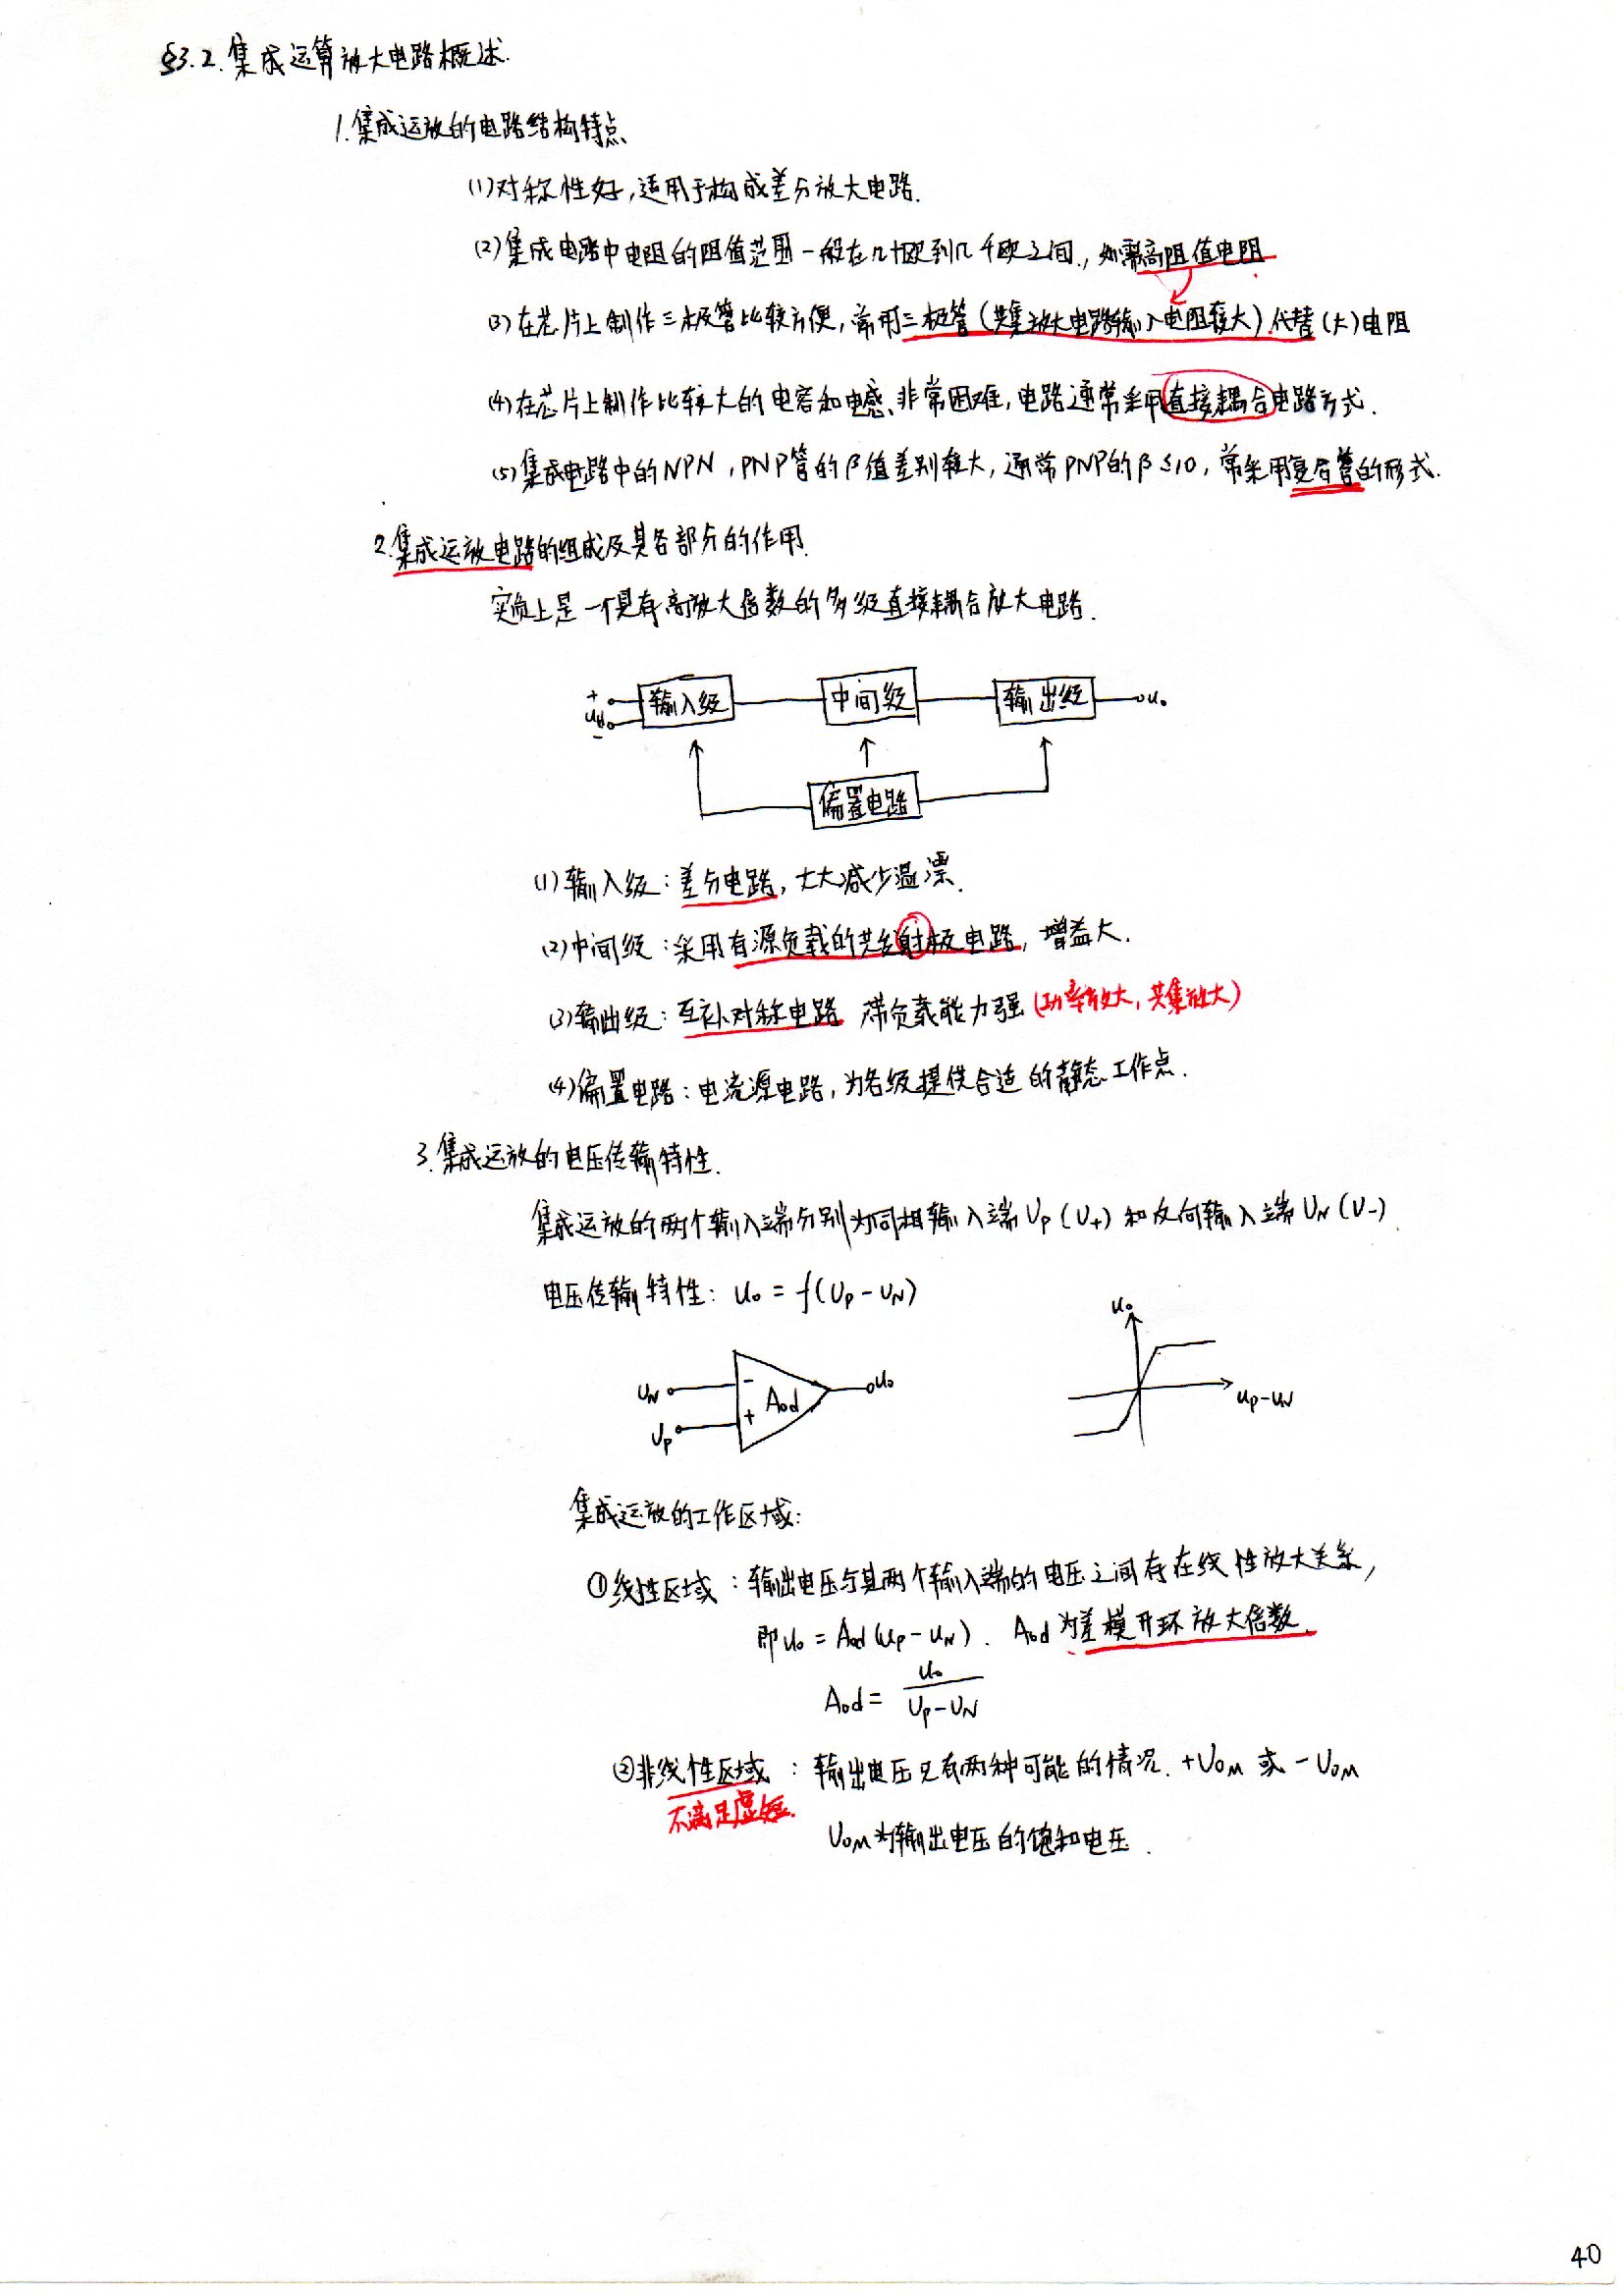 §3.2.集成运算放大电路概述.
1.集成运放的电路结构特点
(1)对称性好,适用于构成差分放大电路.
(2)集成电路中电阻的阻值范围一般在几十欧到几千欧之间.,如需高阻值电阻
(3)在芯片上制作三极管比较方便,常用三极管(共集放大电路输入电阻较大)代替(大)电阻
(4)在芯片上制作比较大的电容和电感、非常困难,电路通常采用直接耦合电路方式.
(5)集成电路中的NPN,PNP管的β值差别较大,通常PNP的β≤10,常采用复合管的形式.
2.集成运放电路的组成及其各部分的作用.
实质上是一个具有高放大倍数的多级直接耦合放大电路.
+ uid - 输入级 中间级 输出级 uo
偏置电路
(1)输入级:差分电路,大大减少温漂.
(2)中间级:采用有源负载的共发射极电路,增益大.
(3)输出级:互补对称电路 带负载能力强(功率放大,共集放大)
(4)偏置电路:电流源电路,为各级提供合适的静态工作点.
3.集成运放的电压传输特性.
集成运放的两个输入端分别为同相输入端UP(U+)和反向输入端UN(U-)
电压传输特性: uo=f(UP-UN)
uo
UN - Aod uo
UP +
uP-uN
集成运放的工作区域:
①线性区域:输出电压与其两个输入端的电压之间存在线性放大关系,
即uo=Aod(uP-uN). Aod为差模开环放大倍数.
Aod= uo/(UP-UN)
②非线性区域:输出电压只有两种可能的情况.+UOM或-UOM
不满足虚短.
UOM为输出电压的饱和电压.
40